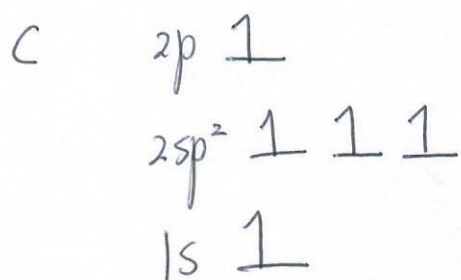 C 2p 1
2sp² 1 1 1
1s 1